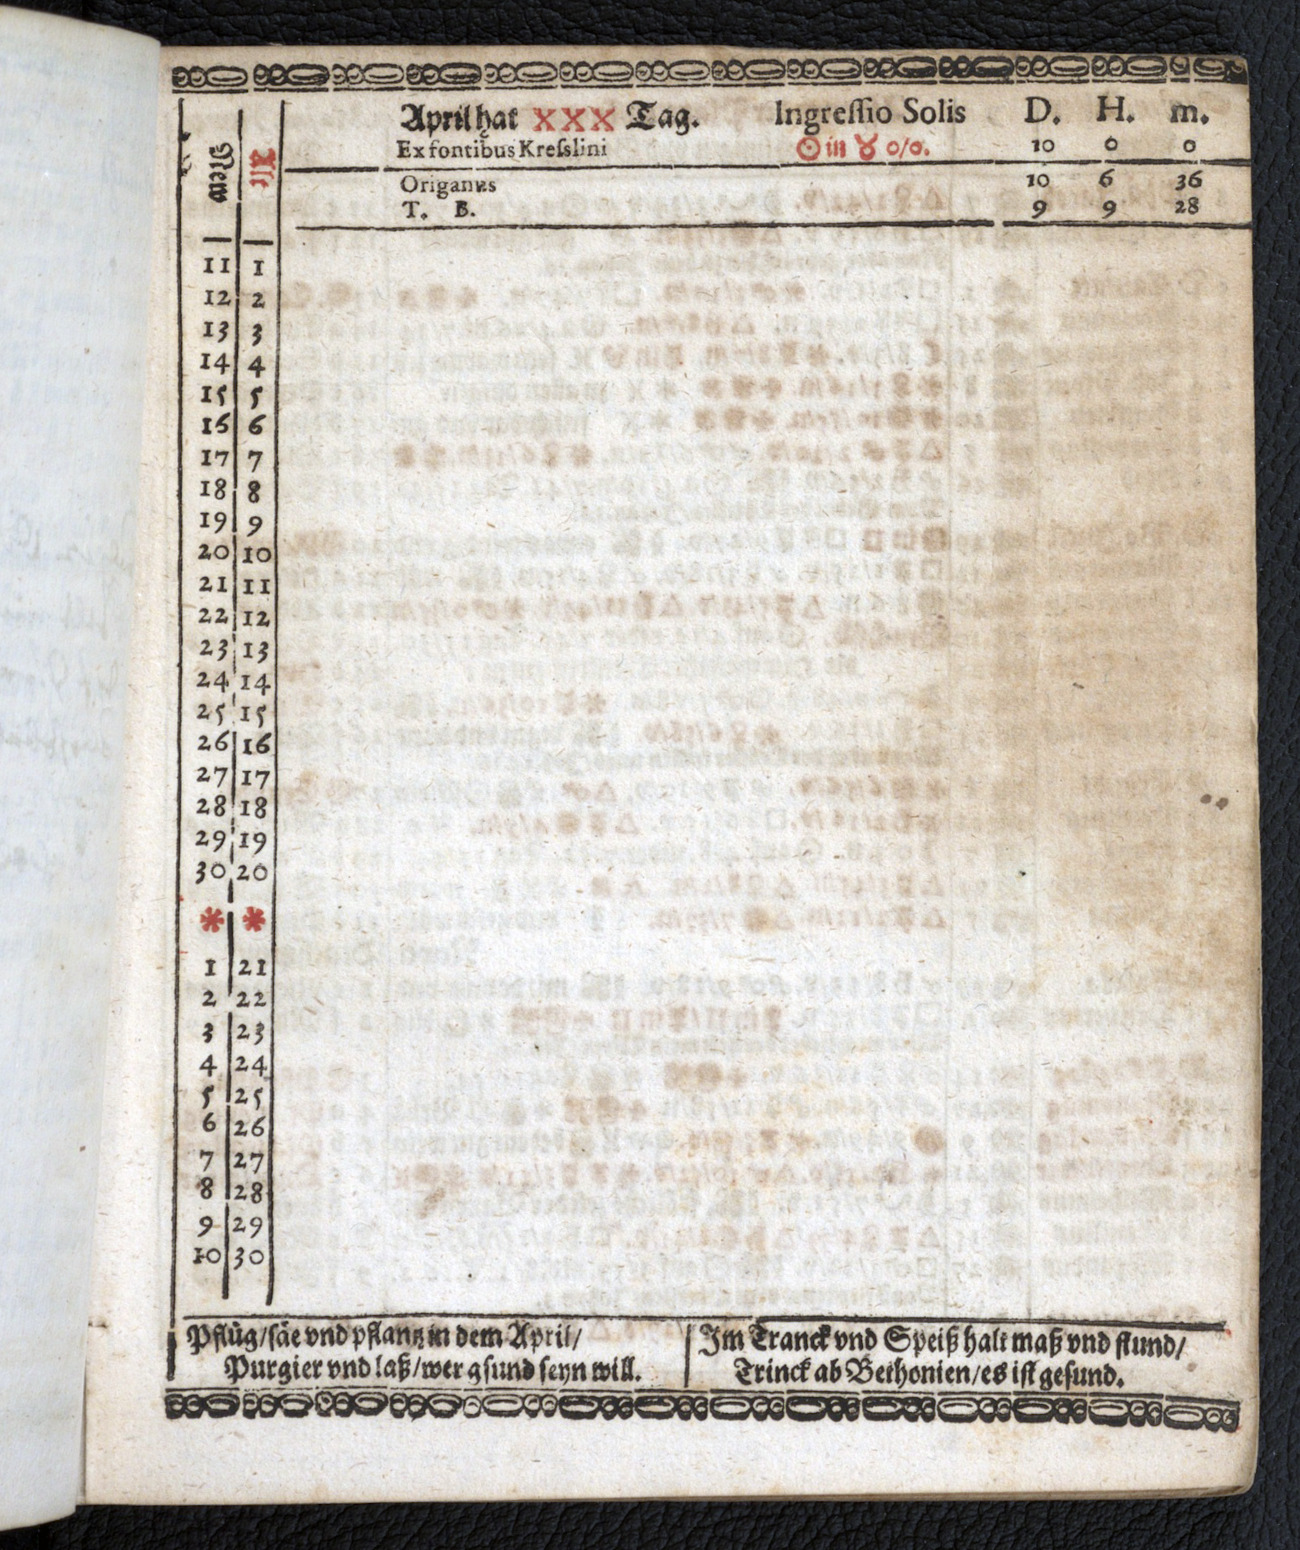 April hat XXX Tag. Ingressio Solis D. H. m.
Ex fontibus Kresslini ☉ in ♉ 0/0. 10 0 0
Origanus 10 6 36
T. B. 9 9 28
New Alt
11 1
12 2
13 3
14 4
15 5
16 6
17 7
18 8
19 9
20 10
21 11
22 12
23 13
24 14
25 15
26 16
27 17
28 18
29 19
30 20
* *
1 21
2 22
3 23
4 24
5 25
6 26
7 27
8 28
9 29
10 30
Pflüg/säe vnd pflantz in dem April/
Purgier vnd laß/wer gsund seyn will.
Im Tranck vnd Speiß halt maß vnd stund/
Trinck ab Bethonien/es ist gesund.